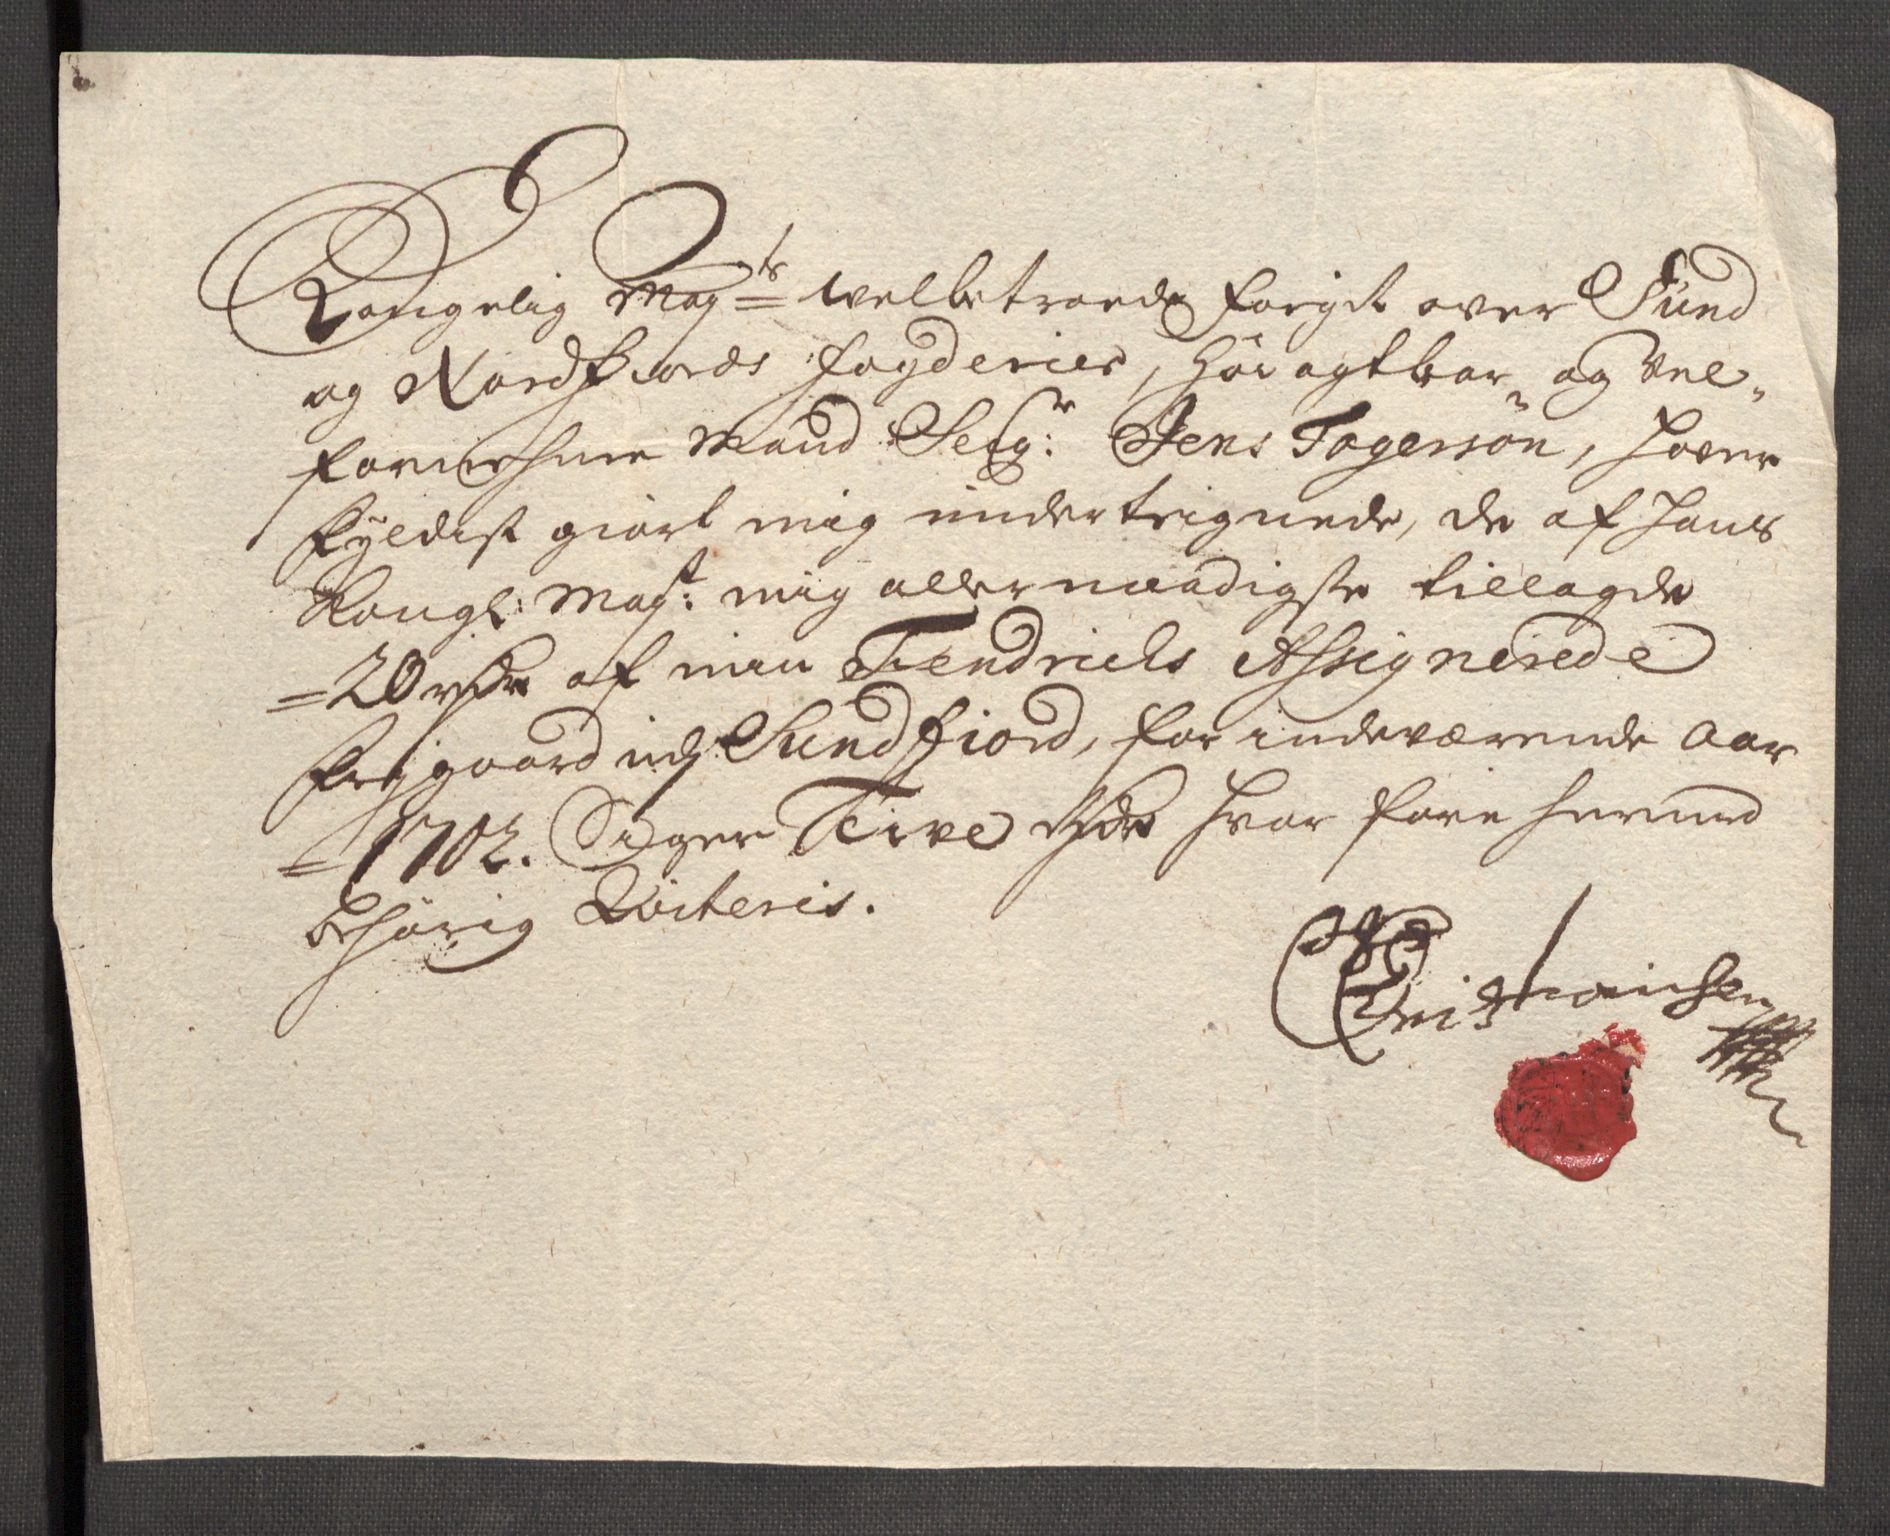 Kongelig Mayts welbetroede Foigit over Sund
og Nordfiords fogderier, Höi agtbar og Vel-
fornehme Mand Seigr: Jens Togersön, hafver
fyldist giort mig underteignede, de af hans
Kongl: Mayst: mig allernaadigste tillagde
=20 rdr af min Fendrichs Assignerede
frjgaard udj Sundfiord, for indeværende aar
=1702. Siger Tive rdr hvor fore herved
behörig Qviteris.